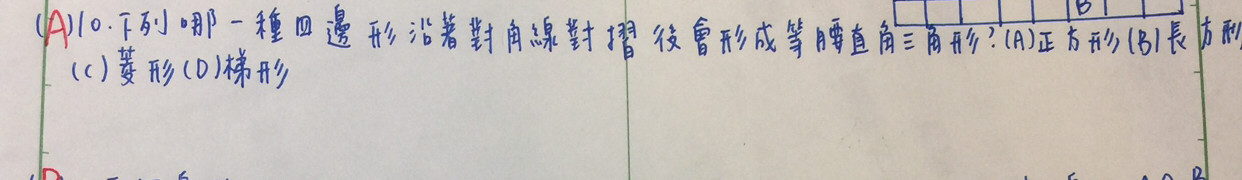 B
(A)10.下列哪一種四邊形沿著對角線對摺後會形成等腰直角三角形?(A)正方形(B)長方形
(C)菱形(D)梯形